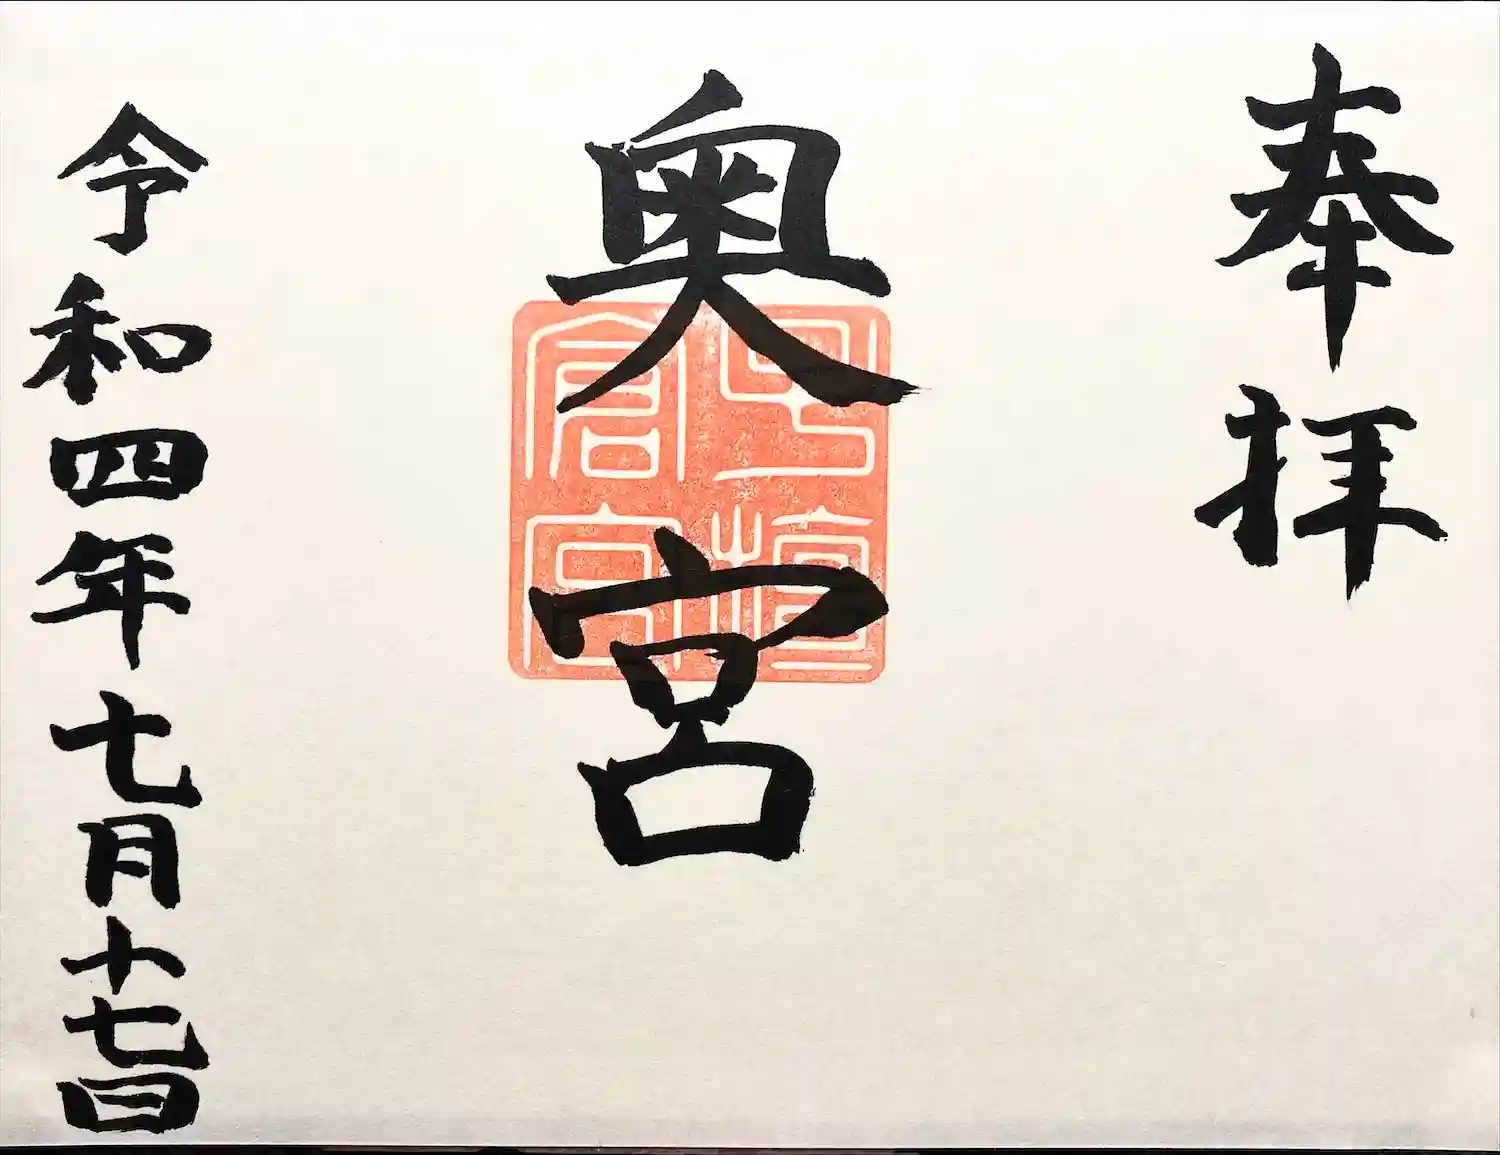 奉拝
奥宮
令和四年七月十七日